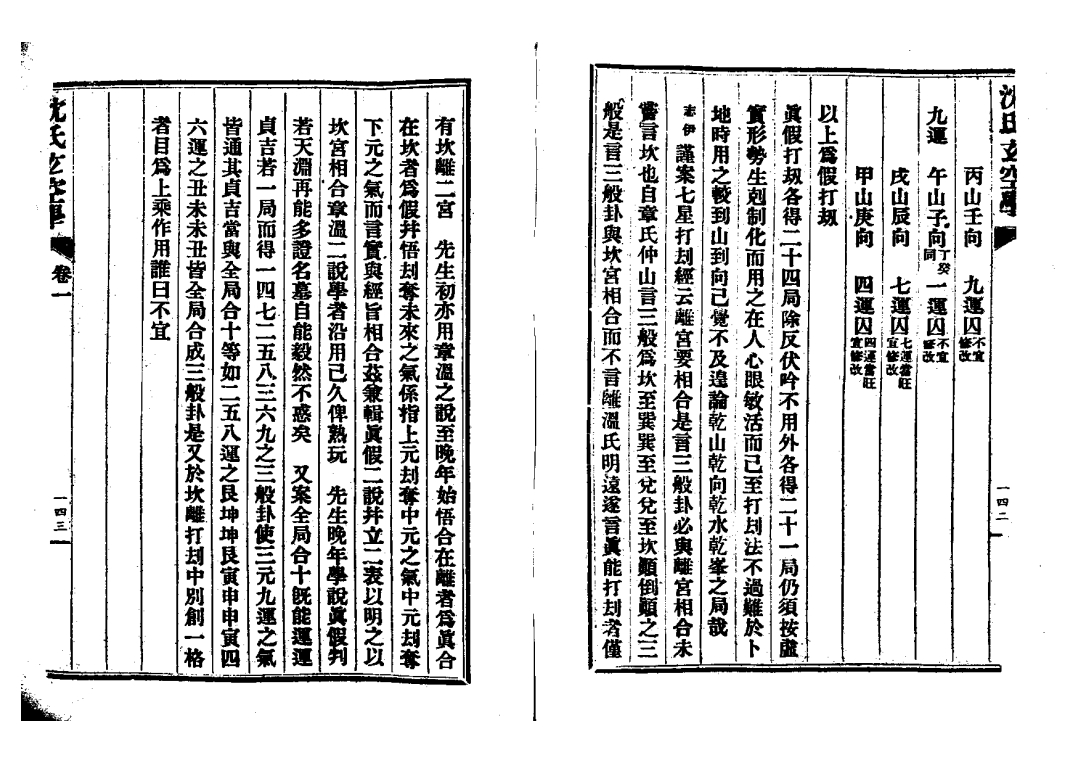 沈氏玄空學
一四二
丙山壬向 九運囚 不宜修改
九運 午山子向 丁癸同 一運囚 不宜修改
戌山辰向 七運囚 七運當旺宜修改
甲山庚向 四運囚 四運當旺宜修改
以上爲假打刼
眞假打刼各得二十四局除反伏吟不用外各得二十一局仍須按巒
實形勢生剋制化而用之在人心眼敏活而已至打刦法不過難於卜
地時用之較到山到向已覺不及遑論乾山乾向乾水乾峯之局哉
志伊謹案七星打刦經云離宮要相合是言三般卦必與離宮相合未
嘗言坎也自章氏仲山言三般爲坎至巽巽至兌兌至坎顚倒顚之三
般是言三般卦與坎宮相合而不言離溫氏明遠遂言眞能打刦者僅
有坎離二宮 先生初亦用章溫之說至晚年始悟合在離者爲眞合
在坎者爲假幷悟刦奪未來之氣係指上元刦奪中元之氣中元刦奪
下元之氣而言實與經旨相合茲兼輯眞假二說幷立二表以明之以
坎宮相合章溫二說學者沿用已久俾熟玩 先生晚年學說眞假判
若天淵再能多證名墓自能毅然不惑矣 又案全局合十既能運運
貞吉若一局而得一四七二五八三六九之三般卦使三元九運之氣
皆通其貞吉當與全局合十等如二五八運之艮坤坤艮寅申申寅四
六運之丑未未丑皆全局合成三般卦是又於坎離打刦中別創一格
者目爲上乘作用誰曰不宜
沈氏玄空學
卷一
一四三